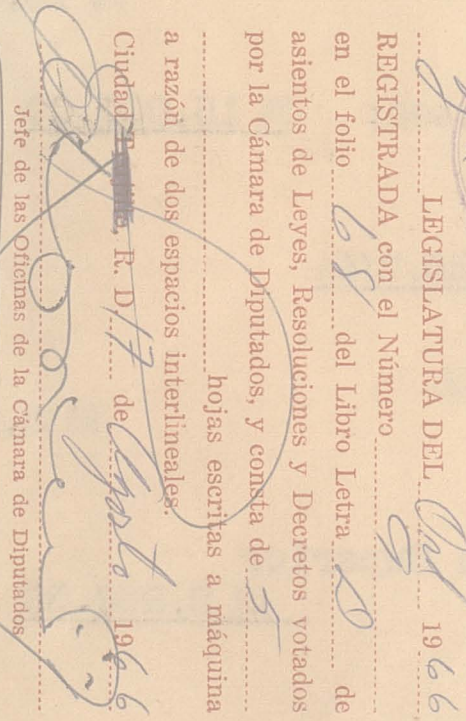 LEGISLATURA DEL Ord 1966
REGISTRADA con el Número 9
en el folio 68 del Libro Letra D de
asientos de Leyes, Resoluciones y Decretos votados
por la Cámara de Diputados, y consta de 5
hojas escritas a máquina
a razón de dos espacios interlineales.
Ciudad R. D. 17 de Agosto 1966
Jefe de las Oficinas de la Cámara de Diputados